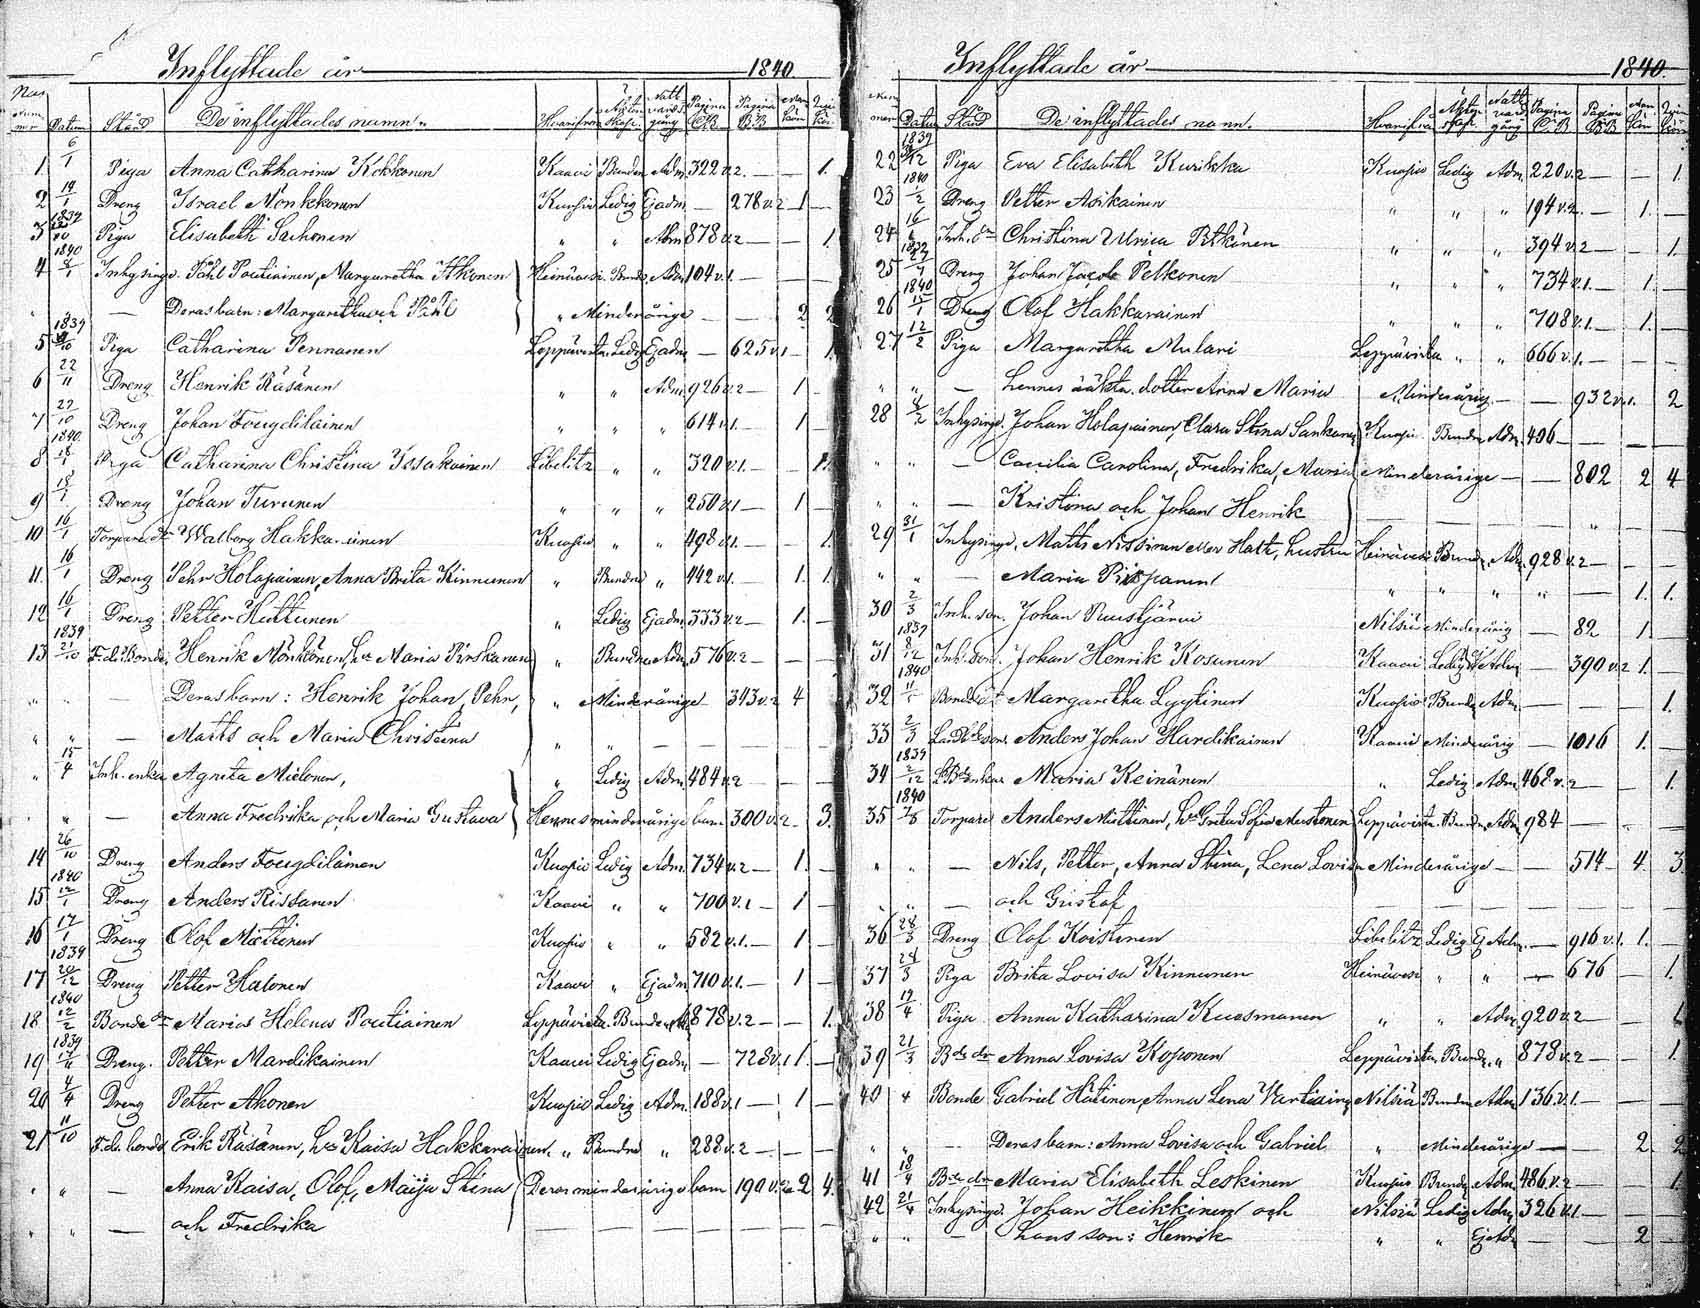 Inflyttade år 1840
Datum Stånd De inflyttades namn. Hvarifrån Pagina C.B. Pagina B.B.
6/1
1. Piga Anna Catharina Kokkonen Kaavi Bunden Adm. 322 v.2. — — 1.
14/1
2 Dreng Israel Mönkkönen Kuopio Ledig Ejadm. — 278 v.2 1 —
1839
3 Piga Elisabeth Sachonen " " Adm 878 v.2 — — 1.
1840
4 Inhysing. Påhl Poutiainen, Margaretha Itkonen Heinävesi Bundn. Adm. 104 v.1. — — —
" — Deras barn: Margaretha och Påhl " Minderårige — — 2 2
1839
5 Piga Catharina Pennanen Leppävirta Ledig Ejadm. — 625 v.1 — 1.
22/11
6 Dreng Henrik Räsänen " " Adm. 926 v.2 — 1 —
27/10
7 Dreng Johan Fougdiläinen " " " 614 v.1. — 1 —
1840
8 Piga Catharina Christina Issakainen Libelitz " " 320 v.1. — — 1.
18/1
9 Dreng Johan Turunen " " " 250 v.1 — 1 —
16/1
10 Torpare dr Walborg Hakkarainen Kuopio " " 498 v.1. — — 1.
16/1
11. Dreng Pehr Holapainen, Anna Brita Kinnunen " Bundne " 442 v.1. — 1. 1.
16/1
12 Dreng Petter Huttunen " Ledig Ejadm. 333 v.2 — 1. —
1839
21/10
13 F.d. Bonde. Henrik Mönkönen, hu Maria Pirskanen " Bundne Adm. 576 v.2 — — —
" " — Deras barn: Henrik Johan, Pehr, " Minderårige — 343 v.2 4
" " — Matts och Maria Christina " " — — — —
15/4
" Inh. enka Agneta Mielonen, " Ledig Adm. 484 v.2 — — —
" " — Anna Fredrika och Maria Gustava Hennes minderårige barn 300 v.2 — 3.
26/10
14 Dreng Anders Fougdiläinen Kuopio Ledig Adm. 734 v.2 — 1. —
1840
12/1
15 Dreng Anders Rissanen Kaavi " " 700 v.1 — 1 —
17/1
16 Dreng Olof Miettinen Kuopio " " 582 v.1. — 1 —
1839
20/12
17 Dreng Petter Halonen Kaavi " Ejadm. 710 v.1. — 1 —
1840
12/2
18 Bonde dr Maria Helena Poutiainen Leppävirta Bunden Adm. 878 v.2 — — 1.
1839
19 Dreng. Petter Mardikainen Kaavi Ledig Ejadm. — 728 v.1 1. —
4/4
20 Dreng Petter Ahonen Kuopio Ledig Adm. 188 v.1 — 1 —
11/10
21 F.d. bonde Erik Räsänen, hu Kaisa Hakkarainen. " Bundne " 288 v.2 — — —
" " — Anna Kaisa, Olof, Maija Stina Deras minderårige barn 190 v.2 2 4.
" " — och Fredrika — — — —
Inflyttade år 1840.
Datum Stånd De inflyttades namn. Hvarifrån Pagina C.B Pagina B.B
1839
22 Piga Eva Elisabeth Kurikka Kuopio Ledig Adm. 220 v.2 — — 1
1840
1/2
23 Dreng Petter Asikainen " " " 194 v.2. — 1. —
16
24 Inh. dr Christina Ulrica Pitkänen " " " 394 v.2 — — 1.
1839
25 Dreng Johan Jacob Pelkonen " " " 734 v.1. — 1. —
1840
15/1
26 Dreng Olof Hakkarainen " " " 708 v.1. — 1. —
12/2
27 Piga Margaretha Mulari Leppävirta " " 666 v.1. — — —
" " — hennes oäkta dotter Anna Maria Minderårig — — 932 v.1. 2
4/2
28 Inhysing. Johan Holapainen, Clara Stina Sankanen Kuopio Bundne Adm. 406 — — —
" " — Caecilia Carolina, Fredrika, Maria Minderårige — — 802 2 4
" " — Kristina och Johan Henrik — — — — " — —
31/1
29 Inhysing. Matts Nissinen eller Hatt, hustru Heinävesi Bundn. Adm. 928 v.2 — — —
" " — Maria Piispanen " " " " — 1. 1.
2/3
30 Inh. son. Johan Puustjärvi Nilsiä Minderårig — 82 1. —
1839
8/12
31 Inh. son. Johan Henrik Kosunen Kaavi Ledig Adm — 390 v.2 1. —
1840
32 Margaretha Lyytinen Kuopio Bunden Adm. — — — 1.
2/3
33 Anders Johan Hardikainen Kaavi Minderårig — 1016 1. —
1839
2/12
34 Maria Keinänen " Ledig Adm 468 v.2 — — 1.
1840
35 Torpare Anders Miettinen, hu Greta Sofia Mustonen Leppävirta Bundn. Adm. 984 — — —
" " — Nils, Petter, Anna Stina, Lena Lovisa Minderårige — — 514 4. 3.
" " — och Gustaf — — — —
28/3
36 Dreng Olof Koistinen Libelitz Ledig Ej Adm. — 916 v.1. 1. —
28/3
37 Piga Brita Lovisa Kinnunen Heinävesi " " — 676 — 1.
19/4
38 Piga Anna Katharina Kuosmanen " " Adm. 920 v.2 — — 1.
21/3
39 Bde dr Anna Lovisa Koponen Leppävirta Bundn. " 878 v.2 — — 1.
40 " Bonde Gabriel Hätinen, Anna Lena Vartiainen Nilsiä Bundne Adm 136 v.1. — — —
" " — Deras barn: Anna Lovisa och Gabriel " Minderårige — — 2. 2
18/4
41 Bde dr Maria Elisabeth Leskinen Kuopio Bunden Adm. 486 v.2 — — 1.
21/4
42 Inhysing. Johan Heikkinen och Nilsiä Ledig Adm. 326 v.1. — — —
" " — hans son: Henrik " " Ej Adm — — 2 —